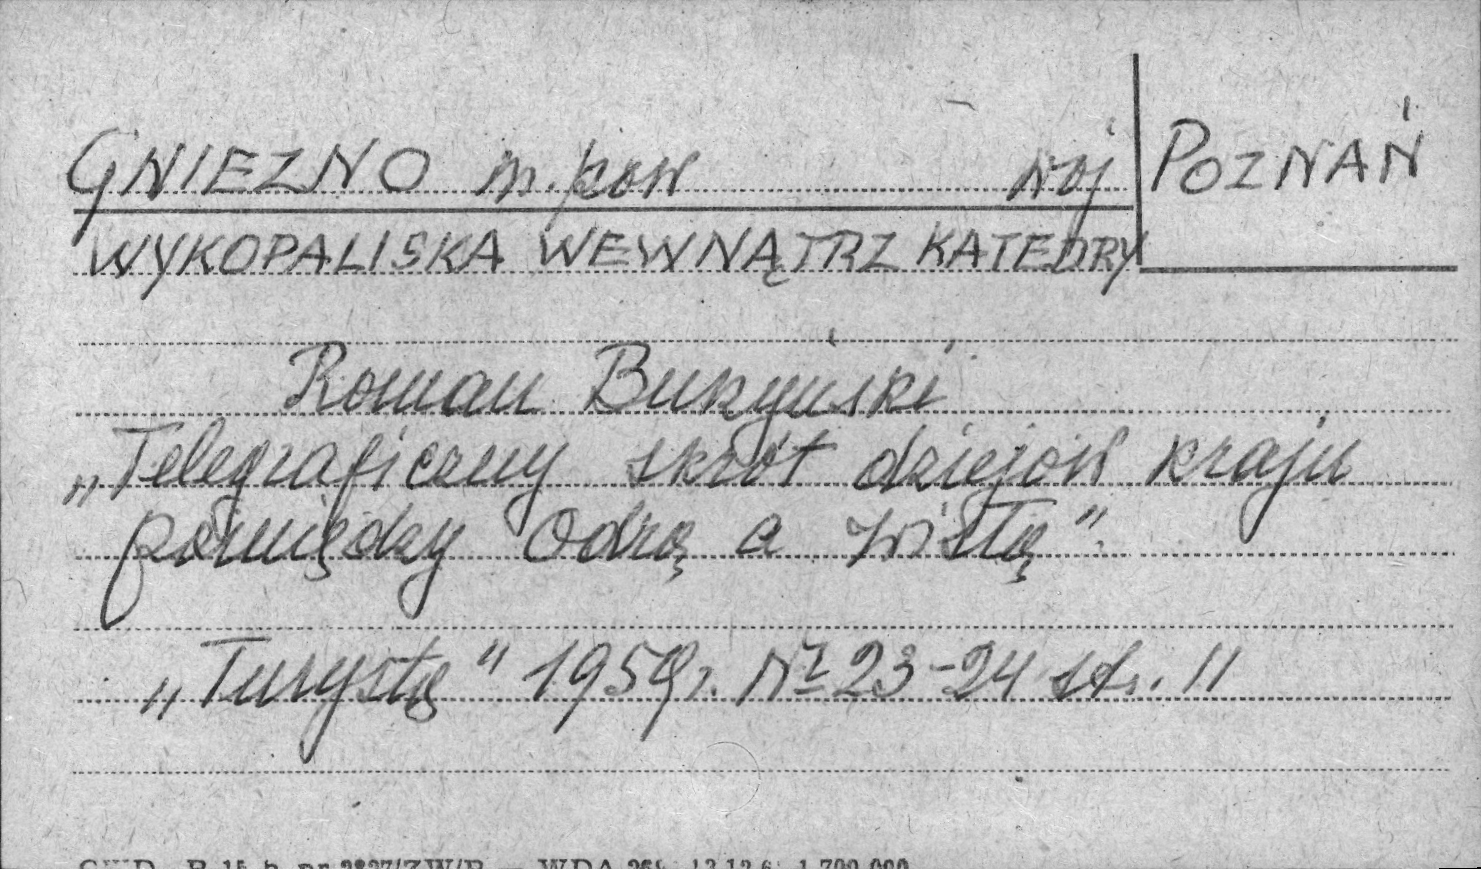 GNIEZNO m. pow woj POZNAŃ
WYKOPALISKA WEWNĄTRZ KATEDRY
Roman
„Telegraficzny skrót dziejów kraju
pomiędzy Odrą a Wisłą".
„Turysta" 1959r. Nr 23-24 str. 11